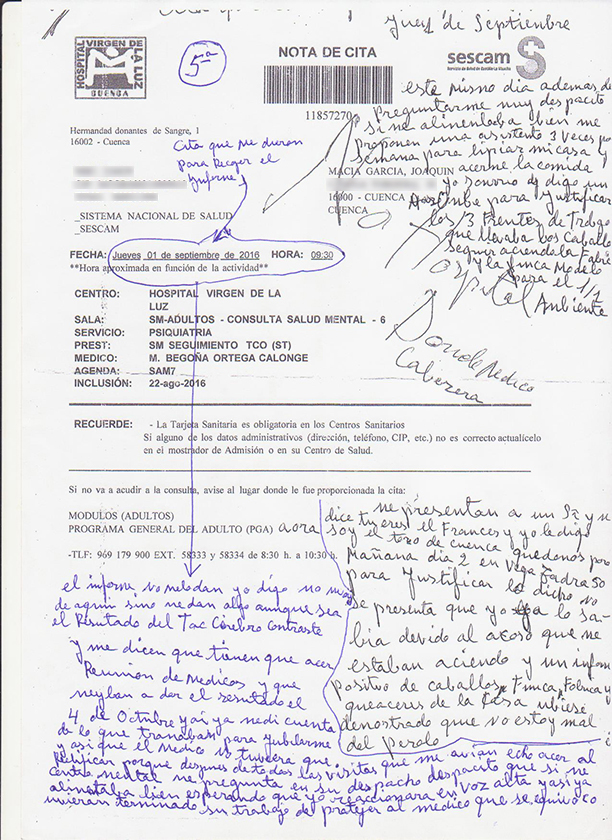 Juev 1 de Septiembre
HOSPITAL VIRGEN DE LA LUZ
CUENCA
5ª
NOTA DE CITA
sescam
Servicio de Salud de Castilla-La Mancha
11857270
Hermandad donantes de Sangre, 1
16002 - Cuenca
Cita que me dieron
para Recoger el
Ynforme
MACIA GARCIA, JOAQUIN
16000 - CUENCA
CUENCA
este mismo dia ademas de
preguntarme muy despacito
si me alimentaba bien me
proponen una asistente 3 veces por
semana para lipiar mi casa y
acerme la comida
yo digo un
para Justificar
los 3 Frentes de Trabajo
que llevaba los Caballos
seguir aciendo la Fabri
y la Finca Modelo
para el
Ambiente
ospital
Donde Medico
Cabezera
_SISTEMA NACIONAL DE SALUD
_SESCAM
FECHA: Jueves 01 de septiembre de 2016 HORA: 09:30
**Hora aproximada en función de la actividad**
CENTRO: HOSPITAL VIRGEN DE LA
LUZ
SALA: SM-ADULTOS - CONSULTA SALUD MENTAL - 6
SERVICIO: PSIQUIATRIA
PREST: SM SEGUIMIENTO TCO (ST)
MEDICO: M. BEGOÑA ORTEGA CALONGE
AGENDA: SAM7
INCLUSIÓN: 22-ago-2016
RECUERDE: - La Tarjeta Sanitaria es obligatoria en los Centros Sanitarios
Si alguno de los datos administrativos (dirección, teléfono, CIP, etc.) no es correcto actualícelo
en el mostrador de Admisión o en su Centro de Salud.
Si no va a acudir a la consulta, avise al lugar donde le fue proporcionada la cita:
MODULOS (ADULTOS)
PROGRAMA GENERAL DEL ADULTO (PGA)
-TLF: 969 179 900 EXT. 58333 y 58334 de 8:30 h. a 10:30 h.
aora me presentan a un Sr y me
dice tu eres el Frances y yo le digo
soy el toro de cuenca quedamos por
Mañana dia 2 en Vega
para Justificar lo dicho no
se presenta que yo ya lo sa-
bia devido al acoso que me
estaban aciendo y un inform
positivo de caballos, Finca, Fabrica y
queaceres de la Casa ubiese
demostrado que no estoy mal
del perolo
el informe no me lo dan yo digo no me
de aqui sino me dan algo aunque sea
el Resutado del Tac Cerebro contraste
y me dicen que tienen que acer
Reunion de Medicos y que
me yban a dar el resutado el
4 de Octubre yai ya me di cuenta
de lo que tramaban para Yubilarme
y asi que el Medico no tuviera que
Retificar porque despues de todas las visitas que me avian echo acer al
centro mental me pregunta en su despacho despacito que si me
alimentaba bien esperando que yo reaccionara en voz alta yasi ya
uvieran terminado su trabajo de protejer al médico que se equivoco